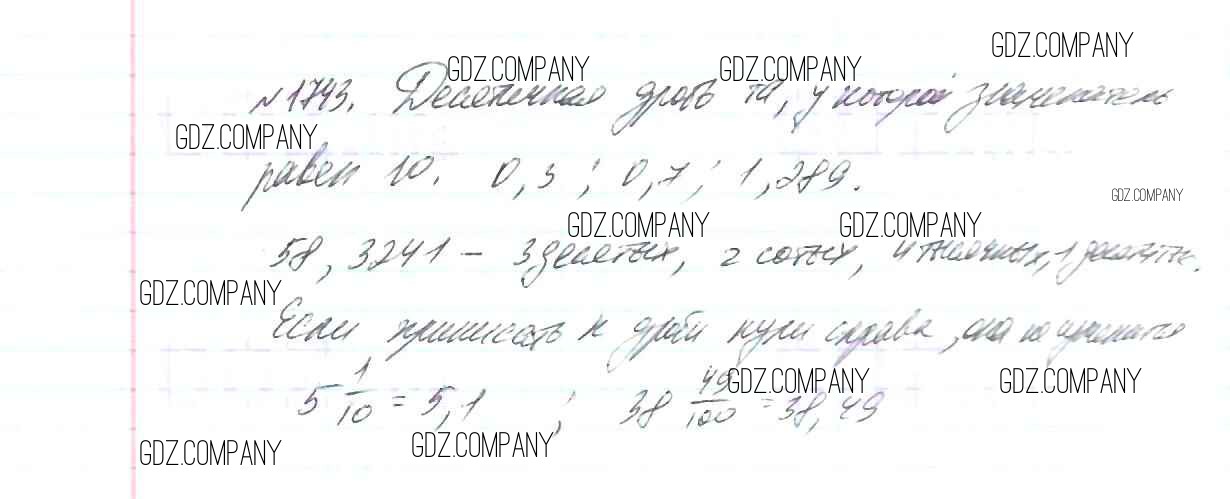 GDZ.COMPANY
GDZ.COMPANY GDZ.COMPANY
№1743. Десятичная дробь та, у которой знаменатель
GDZ.COMPANY
равен 10. 0,3; 0,7; 1,289.
GDZ.COMPANY
GDZ.COMPANY GDZ.COMPANY
58,3241 – 3 десятых, 2 сотых, 4 тысячных, 1 десятитыс.
GDZ.COMPANY
Если приписать к дроби нули справа, она не изменится
5 1/10 = 5,1 ; 38 49/100 = 38,49
GDZ.COMPANY GDZ.COMPANY
GDZ.COMPANY GDZ.COMPANY